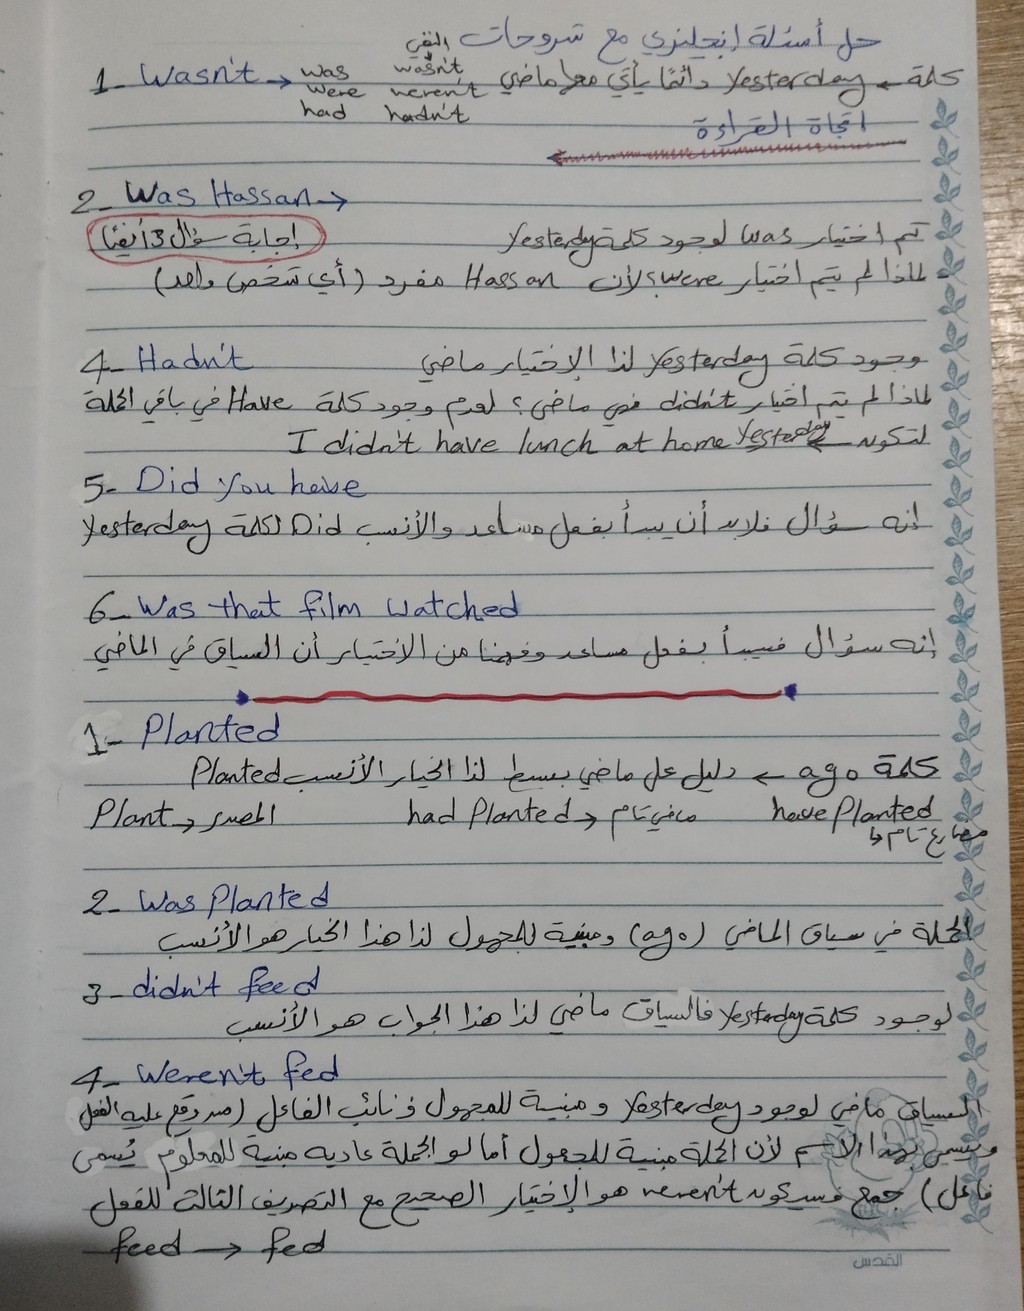 حل أسئلة إنجليزي مع شروحات
النفي
1- Wasn't → was wasn't كلمة ← yesterday دائمًا يأتي معها ماضي
were weren't
had hadn't
اتجاة القراءة
2- Was Hassan →
تم اختيار was لوجود كلمة yesterday
إجابة سؤال 3 أيضًا
لماذا لم يتم اختيار were؟ لأن Hassan مفرد (أي شخص واحد)
4- Hadn't وجود كلمة yesterday لذا الإختيار ماضي
لماذا لم يتم اختيار didn't فهي ماضي؟ لعدم وجود كلمة Have في باقي الجملة
لتكون ← I didn't have lunch at home yesterday
5- Did you have
إنه سؤال فلابد أن يبدأ بفعل مساعد والأنسب Did لكلمة yesterday
6- Was that film watched
إنه سؤال فسيبدأ بفعل مساعد وفهمنا من الاختيار أن السياق في الماضي
1- Planted
كلمة ago ← دليل على ماضي بسيط لذا الخيار الأنسب Planted
have Planted had Planted → ماضي تام Plant → المصدر
↳ مضارع تام
2- Was Planted
الجملة في سياق الماضي (ago) ومبنية للمجهول لذا هذا الخيار هو الأنسب
3- didn't feed
لوجود كلمة yesterday فالسياق ماضي لذا هذا الجواب هو الأنسب
4- Weren't fed
السياق ماضي لوجود yesterday ومبنية للمجهول ونائب الفاعل (من وقع عليه الفعل
ويسمى بهذا الاسم لأن الجملة مبنية للمجهول أما لو الجملة عاديه مبنية للمعلوم يُسمى
فاعل) جمع فسيكون weren't هو الإختيار الصحيح مع التصريف الثالث للفعل
feed → fed
القدس